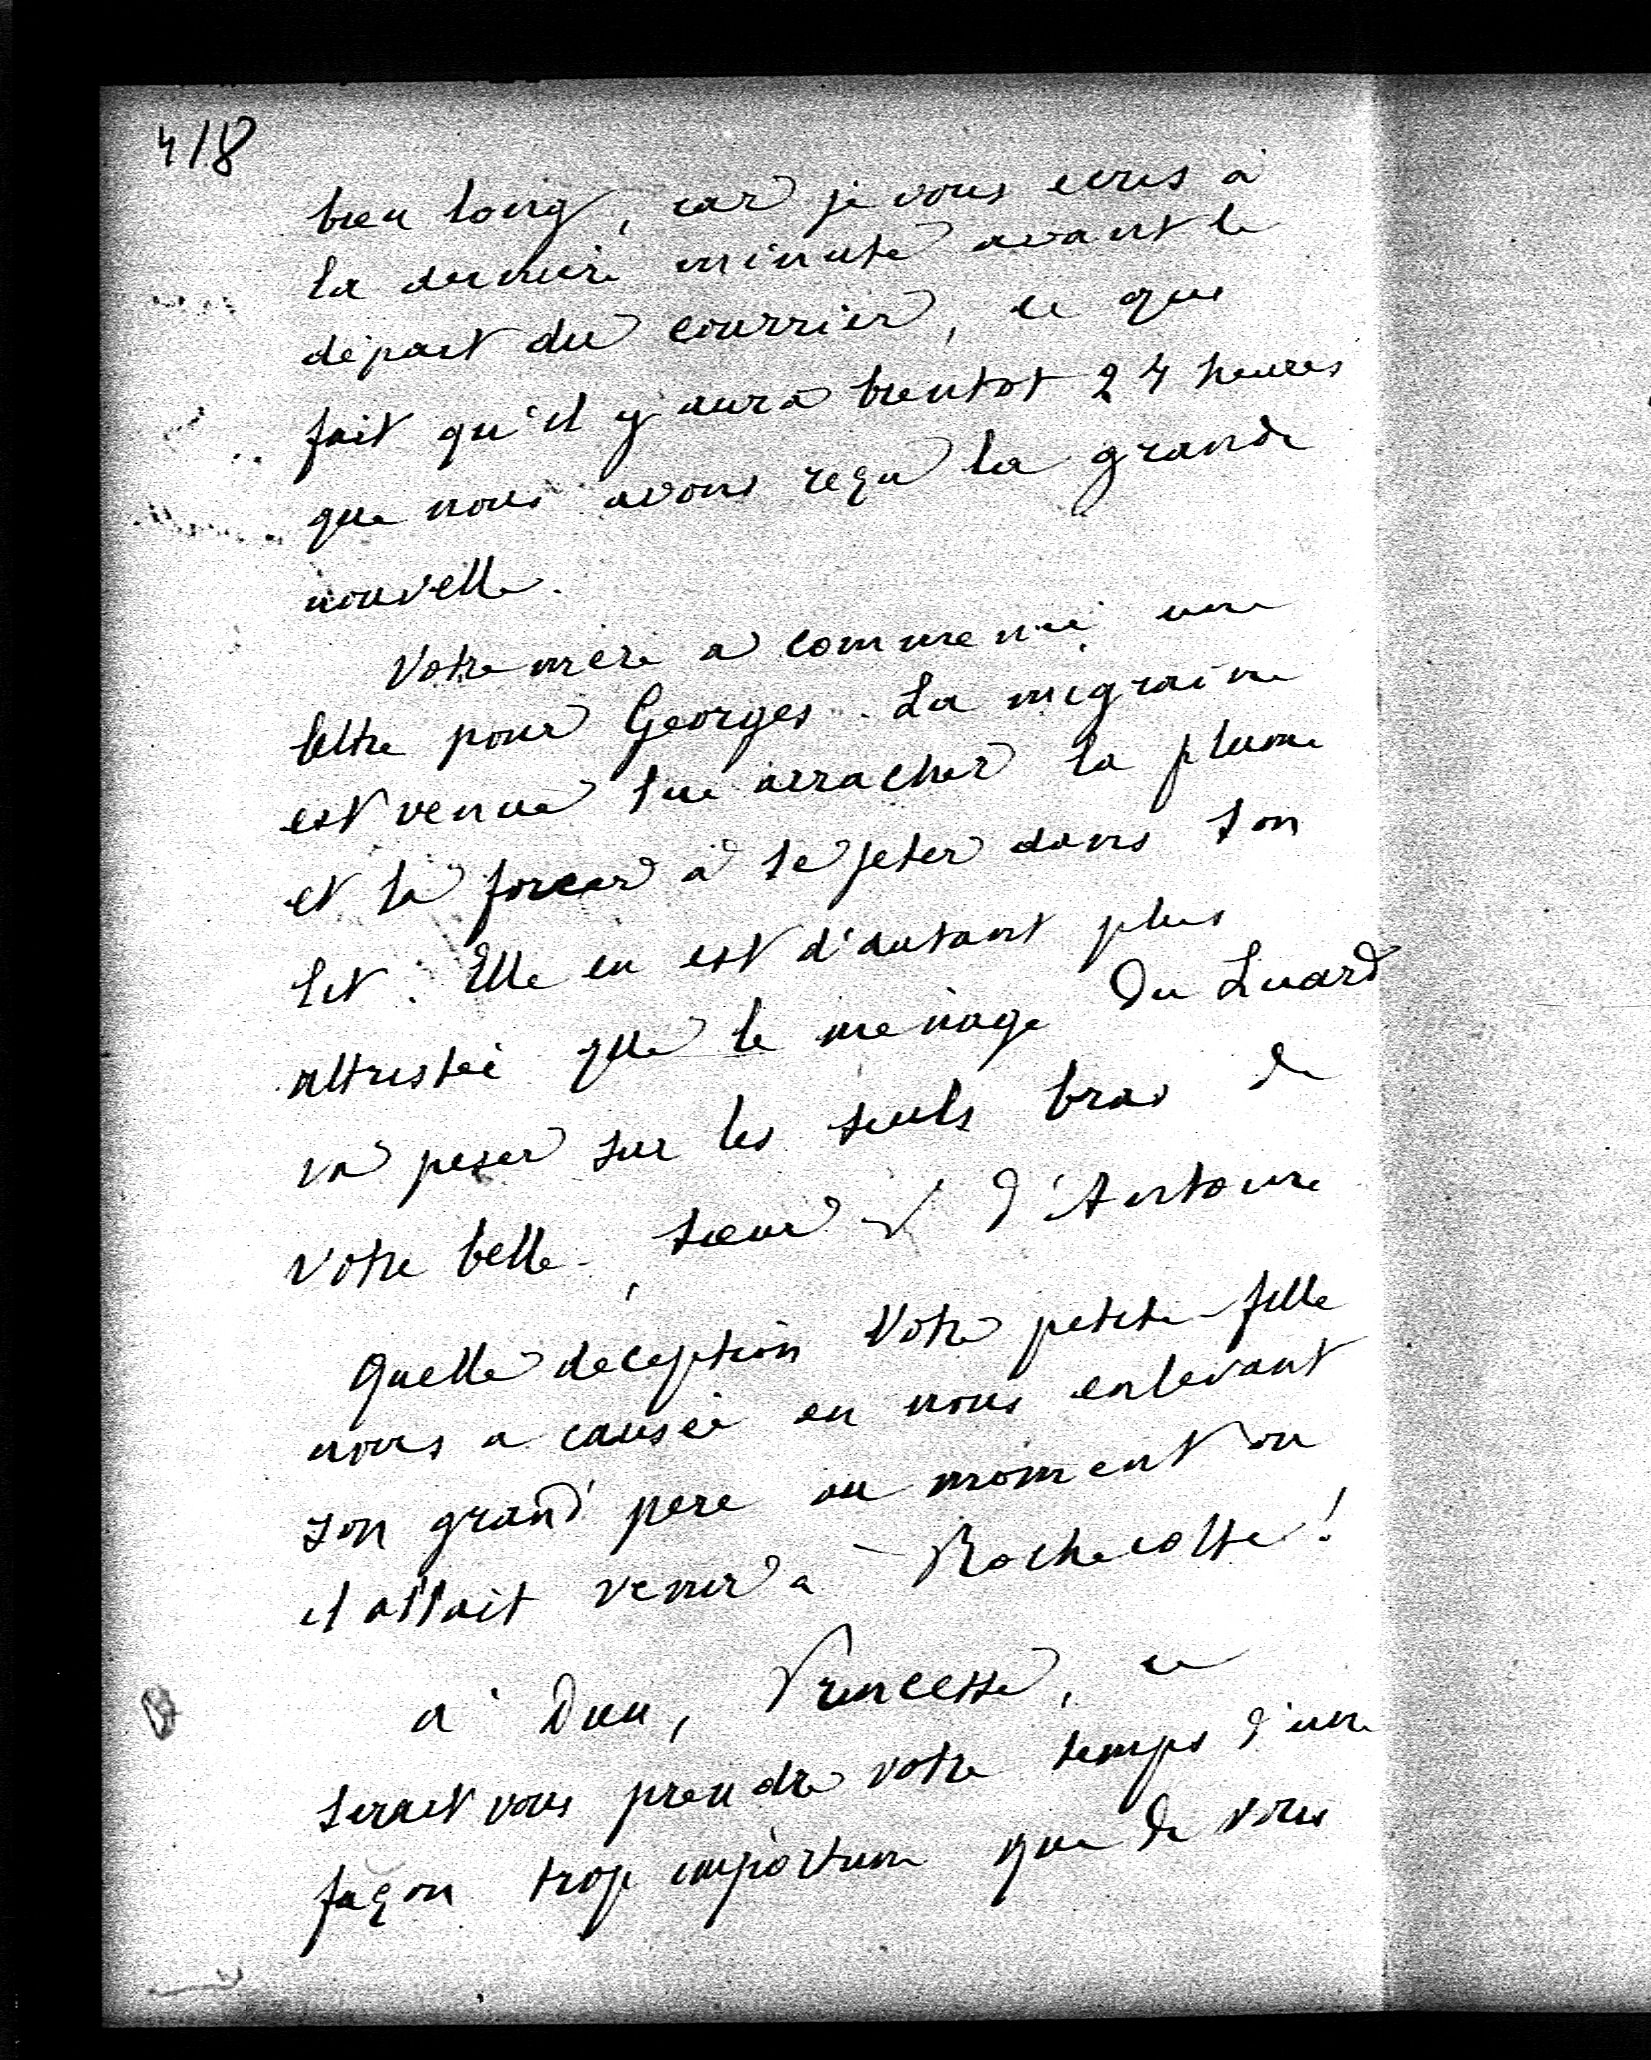 418
bien long, car je vous écris à
la dernière minute avant le
départ du courrier, ce qui
fait qu'il y aura bientot 24 heures
que nous avons reçu la grande
nouvelle.
Votre mère a commencé une
lettre pour Georges. La migraine
est venue lui arracher la plume
et la forcer à se jeter dans son
lit. Elle en est d'autant plus
attristée que le ménage Du Luard
va peser sur les seuls bras de
votre belle-soeur et d'Antoine
Quelle déception votre petite-fille
nous a causée en nous enlevant
son grand'père au moment ou
il allait venir à Rochecotte!
à Dieu, Princesse, ce
serait vous prendre votre temps d'une
façon trop importune que de vous